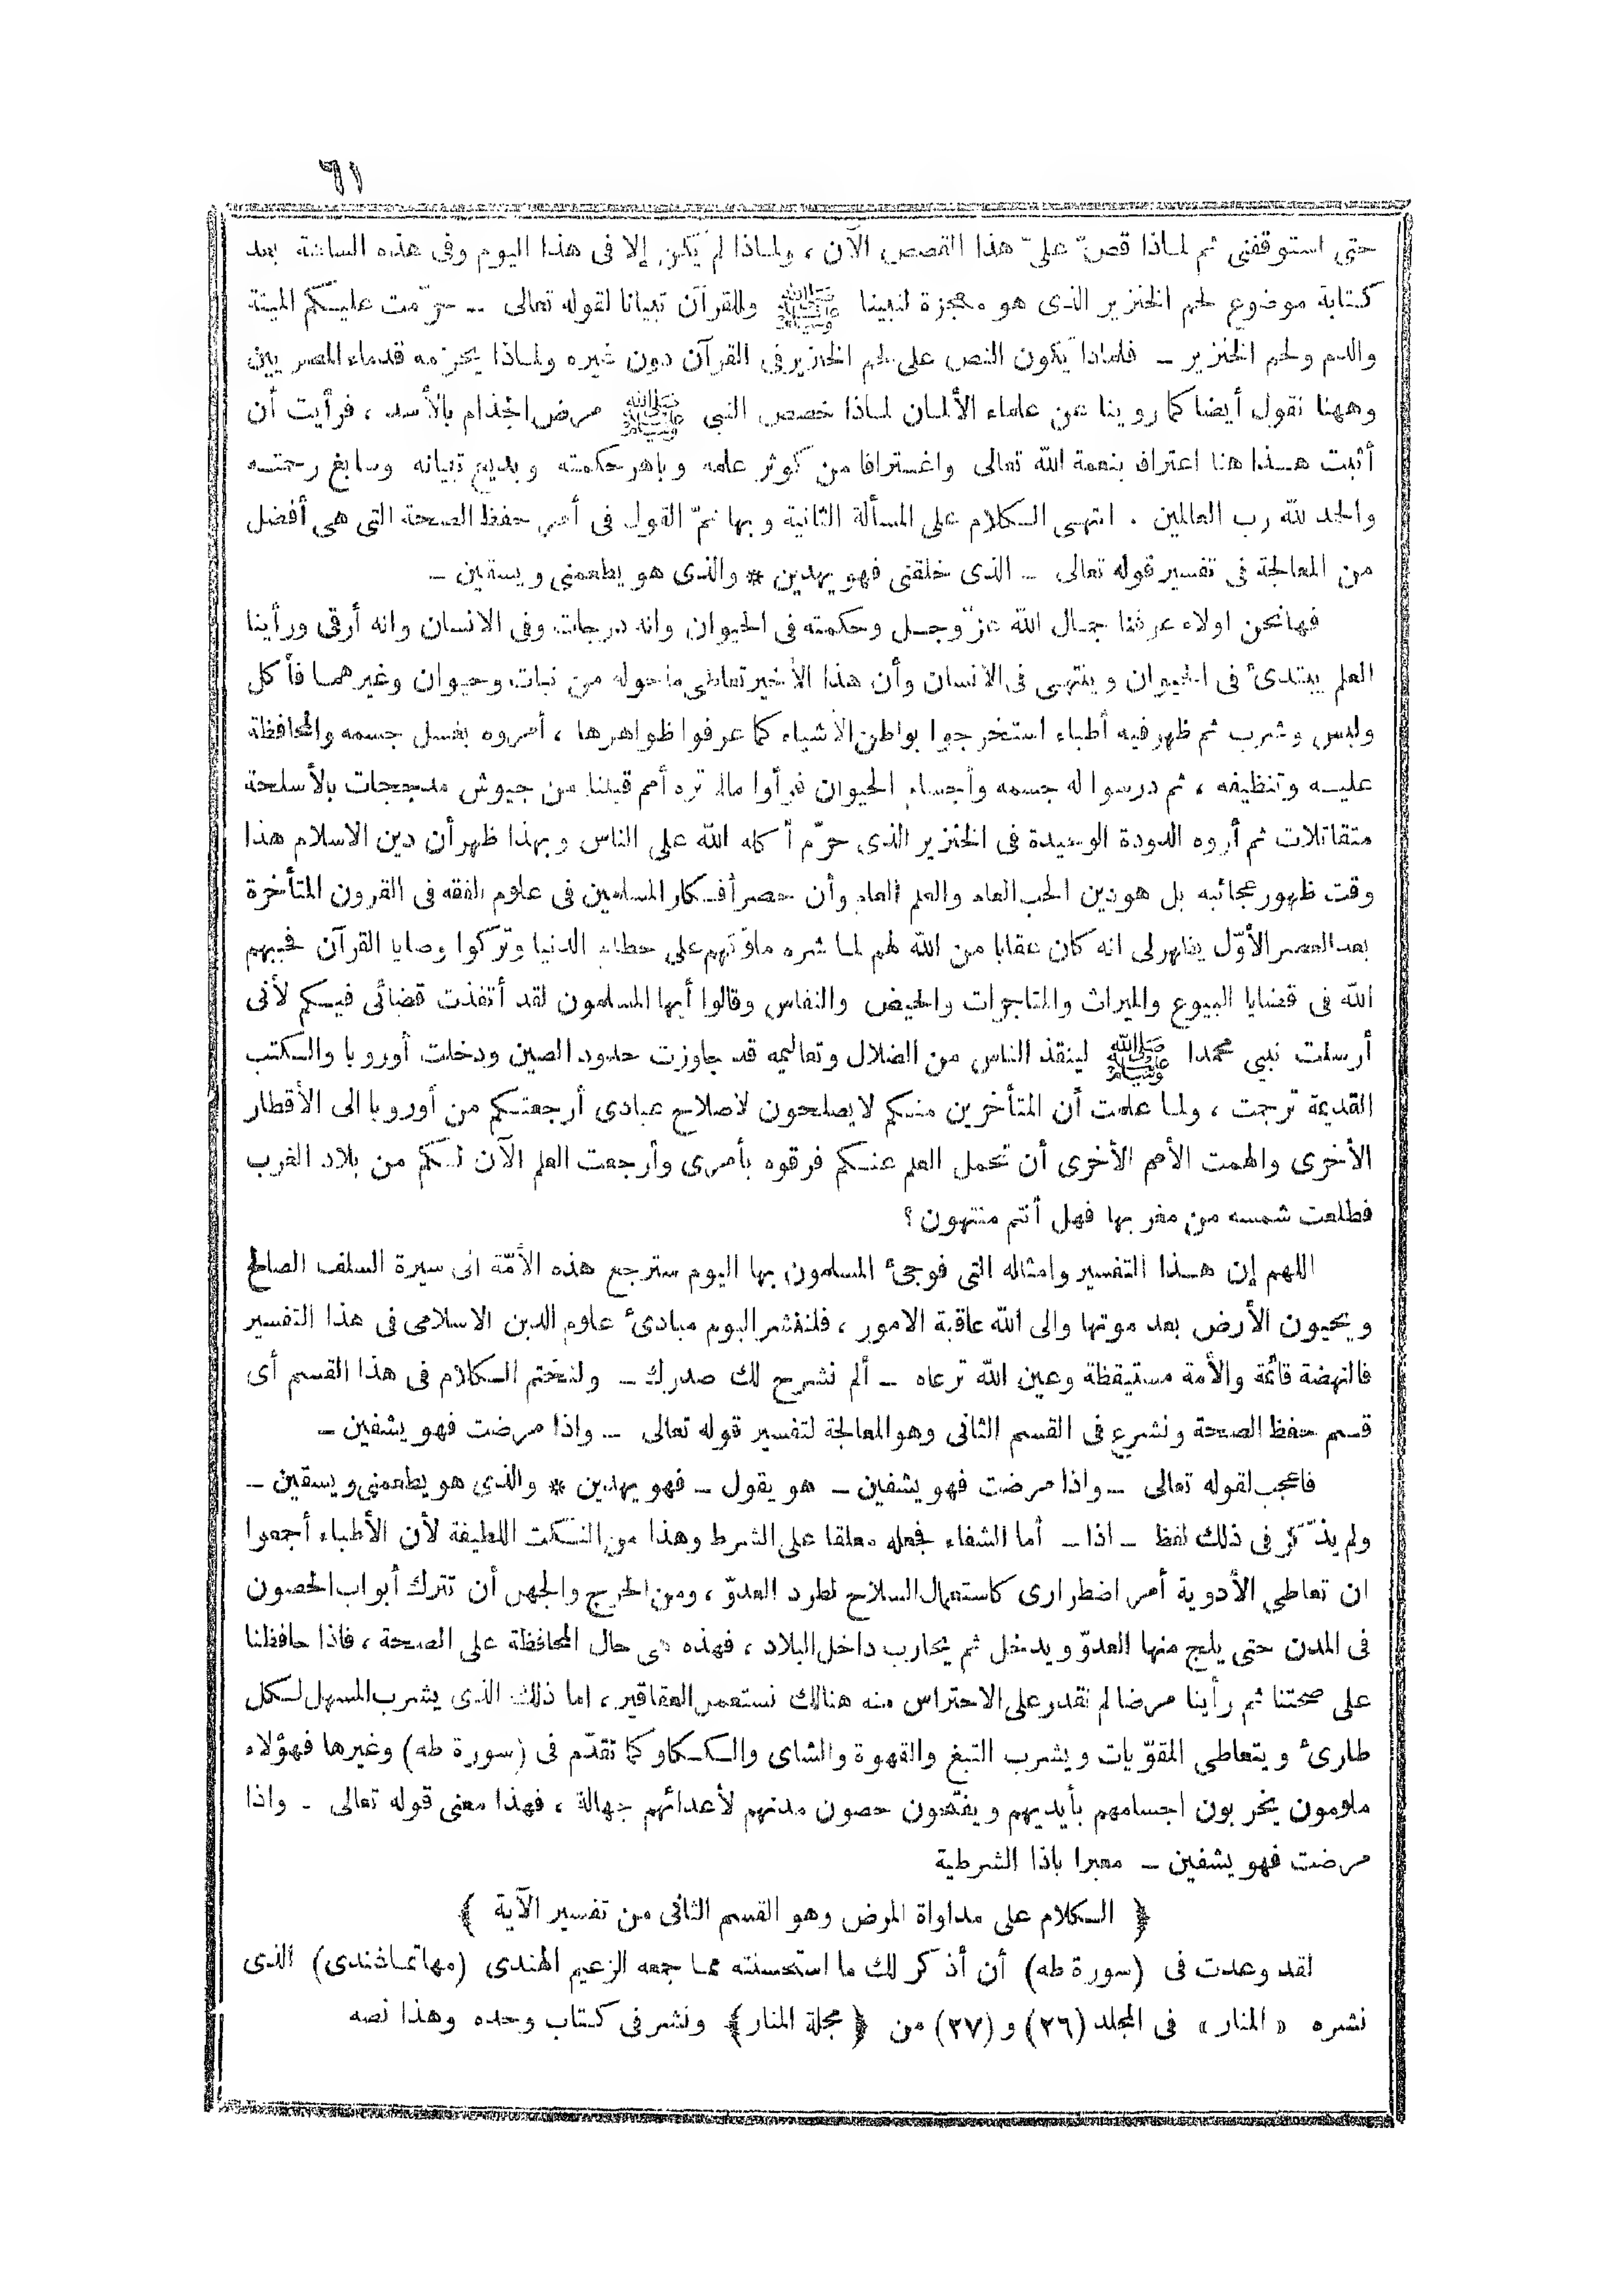 ٦١
حتى استوقفنى ثم لماذا قصّ علىّ هذا القصص الآن ، ولماذا لم يكن إلا فى هذا اليوم وفى هذه الساعة بعد
كتابة موضوع لحم الخنزير الذى هو معجزة لنبينا ﷺ وللقرآن تبيانا لقوله تعالى ــ حرّمت عليكم الميتة
والدم ولحم الخنزير ــ فلماذا يكون النص على لحم الخنزير فى القرآن دون غيره ولماذا يحرّمه قدماء المصريين
وههنا نقول أيضا كما روينا عن علماء الألمان لماذا خصص النبى ﷺ مرض الجذام بالأسد ، فرأيت أن
أثبت هذا هنا اعتراف بنعمة الله تعالى واغترافا من كوثر علمه وباهر حكمته وبديع تبيانه وسابغ رحمته
والحمد لله رب العالمين . انتهى الكلام على المسألة الثانية وبها تمّ القول فى أمر حفظ الصحة التى هى أفضل
من المعالجة فى تفسير قوله تعالى ــ الذى خلقنى فهو يهدين * والذى هو يطعمنى ويسقين ــ
فها نحن اولاء عرفنا جمال الله عزّ وجل وحكمته فى الحيوان وانه درجات وفى الانسان وانه أرقى ورأينا
العلم يبتدئ فى الحيوان وينتهى فى الانسان وأن هذا الأخير تعاطى ما حوله من نبات وحيوان وغيرهما فأكل
ولبس وشرب ثم ظهر فيه أطباء استخرجوا بواطن الأشياء كما عرفوا ظواهرها ، أمروه بغسل جسمه والمحافظة
عليه وتنظيفه ، ثم درسوا له جسمه وأجسام الحيوان فرأوا مالم تره أمم قبلنا من جيوش مدججات بالأسلحة
متقاتلات ثم أروه الدودة الوحيدة فى الخنزير الذى حرّم أكله الله على الناس وبهذا ظهر أن دين الاسلام هذا
وقت ظهور عجائبه بل هو دين الحب العام والعلم العام وأن حصر أفكار المسلمين فى علوم الفقه فى القرون المتأخرة
بعد العصر الأوّل يظهر لى انه كان عقابا من الله لهم لما شره ملوكهم على حطام الدنيا وتركوا وصايا القرآن فحبسهم
الله فى قضايا البيوع والميراث والمتاجرات والحيض والنفاس وقالوا أيها المسلمون لقد أنفذت قضائى فيكم لأنى
أرسلت نبي محمدا ﷺ لينقذ الناس من الضلال وتعاليمه قد جاوزت حدود الصين ودخلت أوروبا والكتب
القديمة ترجمت ، ولما علمت أن المتأخرين منكم لا يصلحون لاصلاح عبادى أرجعتكم من أوروبا الى الأقطار
الأخرى وألهمت الأمم الأخرى أن تحمل العلم عنكم فرقوه بأمرى وأرجعت العلم الآن لكم من بلاد الغرب
فطلعت شمسه من مغربها فهل أنتم منتهون ؟
اللهم إن هذا التفسير وامثاله التى فوجئ المسلمون بها اليوم سترجع هذه الأمّة الى سيرة السلف الصالح
ويحيون الأرض بعد موتها والى الله عاقبة الامور ، فلننشر اليوم مبادئ علوم الدين الاسلامى فى هذا التفسير
فالنهضة قائمة والأمة مستيقظة وعين الله ترعاه ــ ألم نشرح لك صدرك ــ ولنختم الكلام فى هذا القسم أى
قسم حفظ الصحة ونشرع فى القسم الثانى وهو المعالجة لتفسير قوله تعالى ــ واذا مرضت فهو يشفين ــ
فاعجب لقوله تعالى ــ واذا مرضت فهو يشفين ــ هو يقول ــ فهو يهدين * والذى هو يطعمنى ويسقين ــ
ولم يذكر فى ذلك لفظ ــ اذا ــ أما الشفاء فجعله معلقا على الشرط وهذا من النكت اللطيفة لأن الأطباء أجمعوا
ان تعاطى الأدوية أمر اضطرارى كاستعمال السلاح لطرد العدوّ ، ومن الحرج والجهل أن تترك أبواب الحصون
فى المدن حتى يلج منها العدوّ ويدخل ثم يحارب داخل البلاد ، فهذه هى حال المحافظة على الصحة ، فاذا حافظنا
على صحتنا ثم رأينا مرضا لم نقدر على الاحتراس منه هنالك نستعمل العقاقير ، اما ذلك الذى يشرب المسهل لكل
طارئ ويتعاطى المقوّيات ويشرب التبغ والقهوة والشاى والككاو كما تقدّم فى (سورة طه) وغيرها فهؤلاء
ملومون يخربون اجسامهم بأيديهم ويفتحون حصون مدنهم لأعدائهم جهالة ، فهذا معنى قوله تعالى ــ واذا
مرضت فهو يشفين ــ معبرا باذا الشرطية
﴿ الكلام على مداواة المرض وهو القسم الثانى من تفسير الآية ﴾
لقد وعدت فى (سورة طه) أن أذكر لك ما استحسنته مما جمعه الزعيم الهندى (مهاتما غندى) الذى
نشره « المنار » فى المجلد (٢٦) و (٢٧) من ﴿ مجلة المنار ﴾ ونشر فى كتاب وحده وهذا نصه